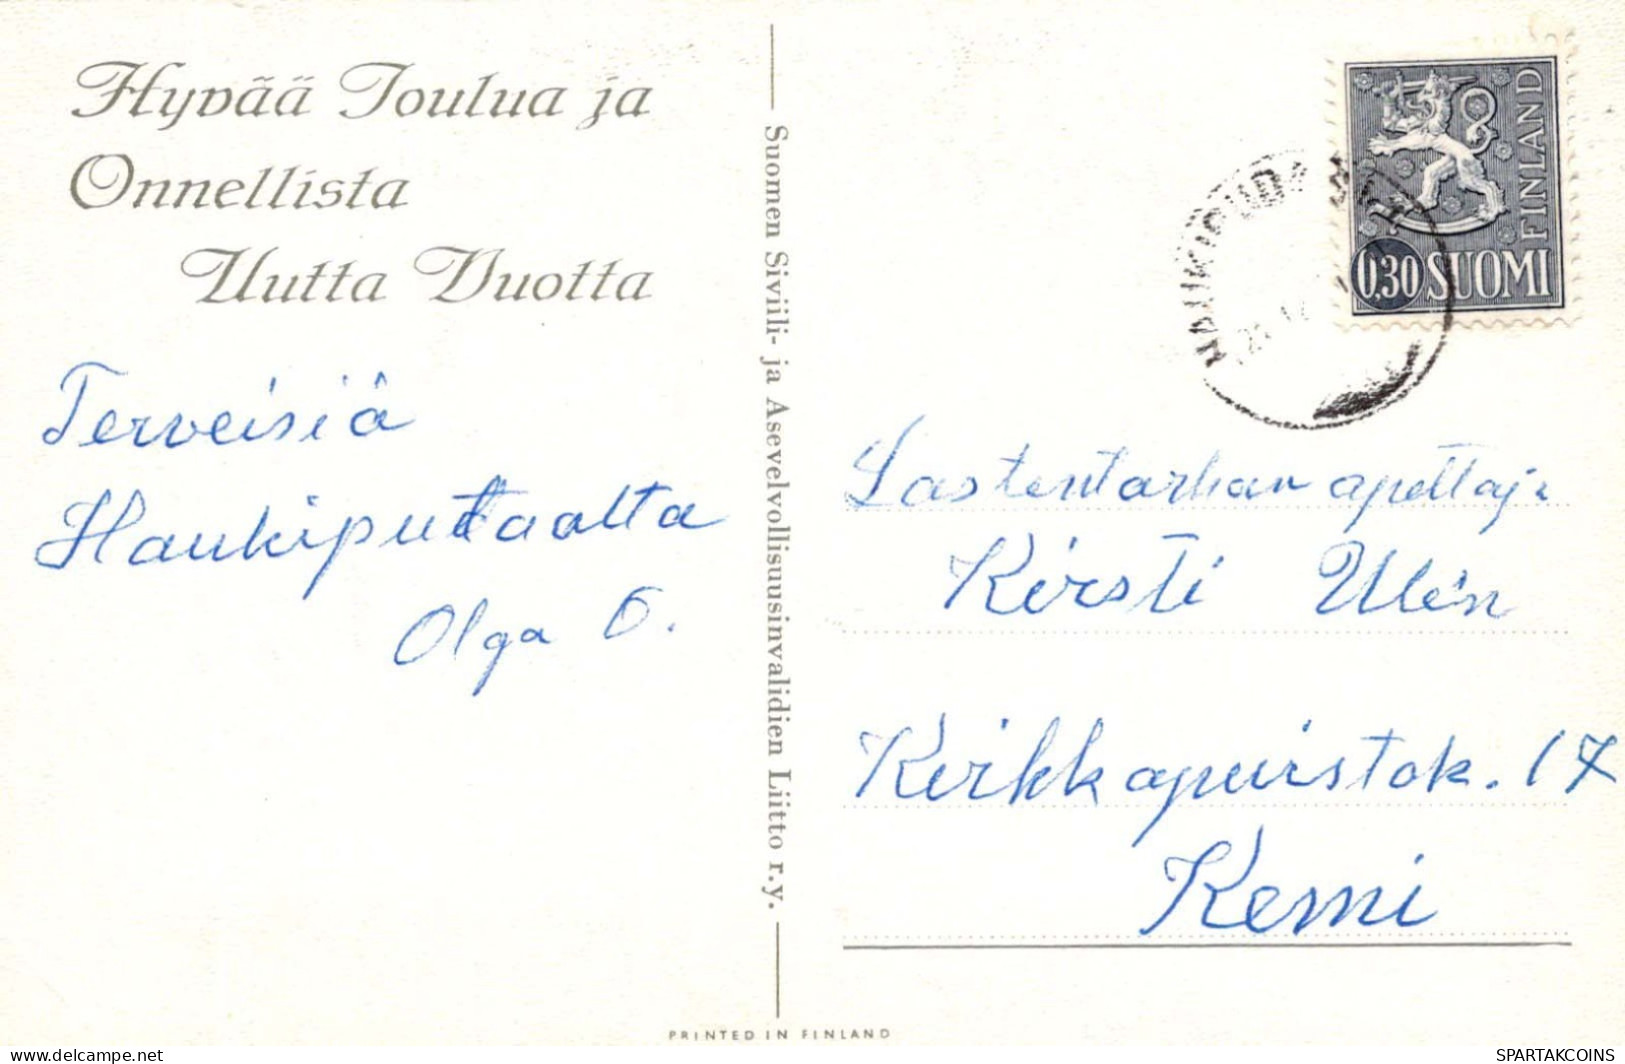 Hyvää Joulua ja
Onnellista
Uutta Vuotta
Terveisiä
Haukiputaalta
Olga O.
Suomen Siviili- ja Asevelvollisuusinvalidien Liitto r.y.
PRINTED IN FINLAND
FINLAND
0,30 SUOMI
HAUKIPUDAS
Lastentarhan opettaja
Kirsti Ulén
Kirkkopuistok. 17
Kemi
delcampe.net
SPARTAKCOINS